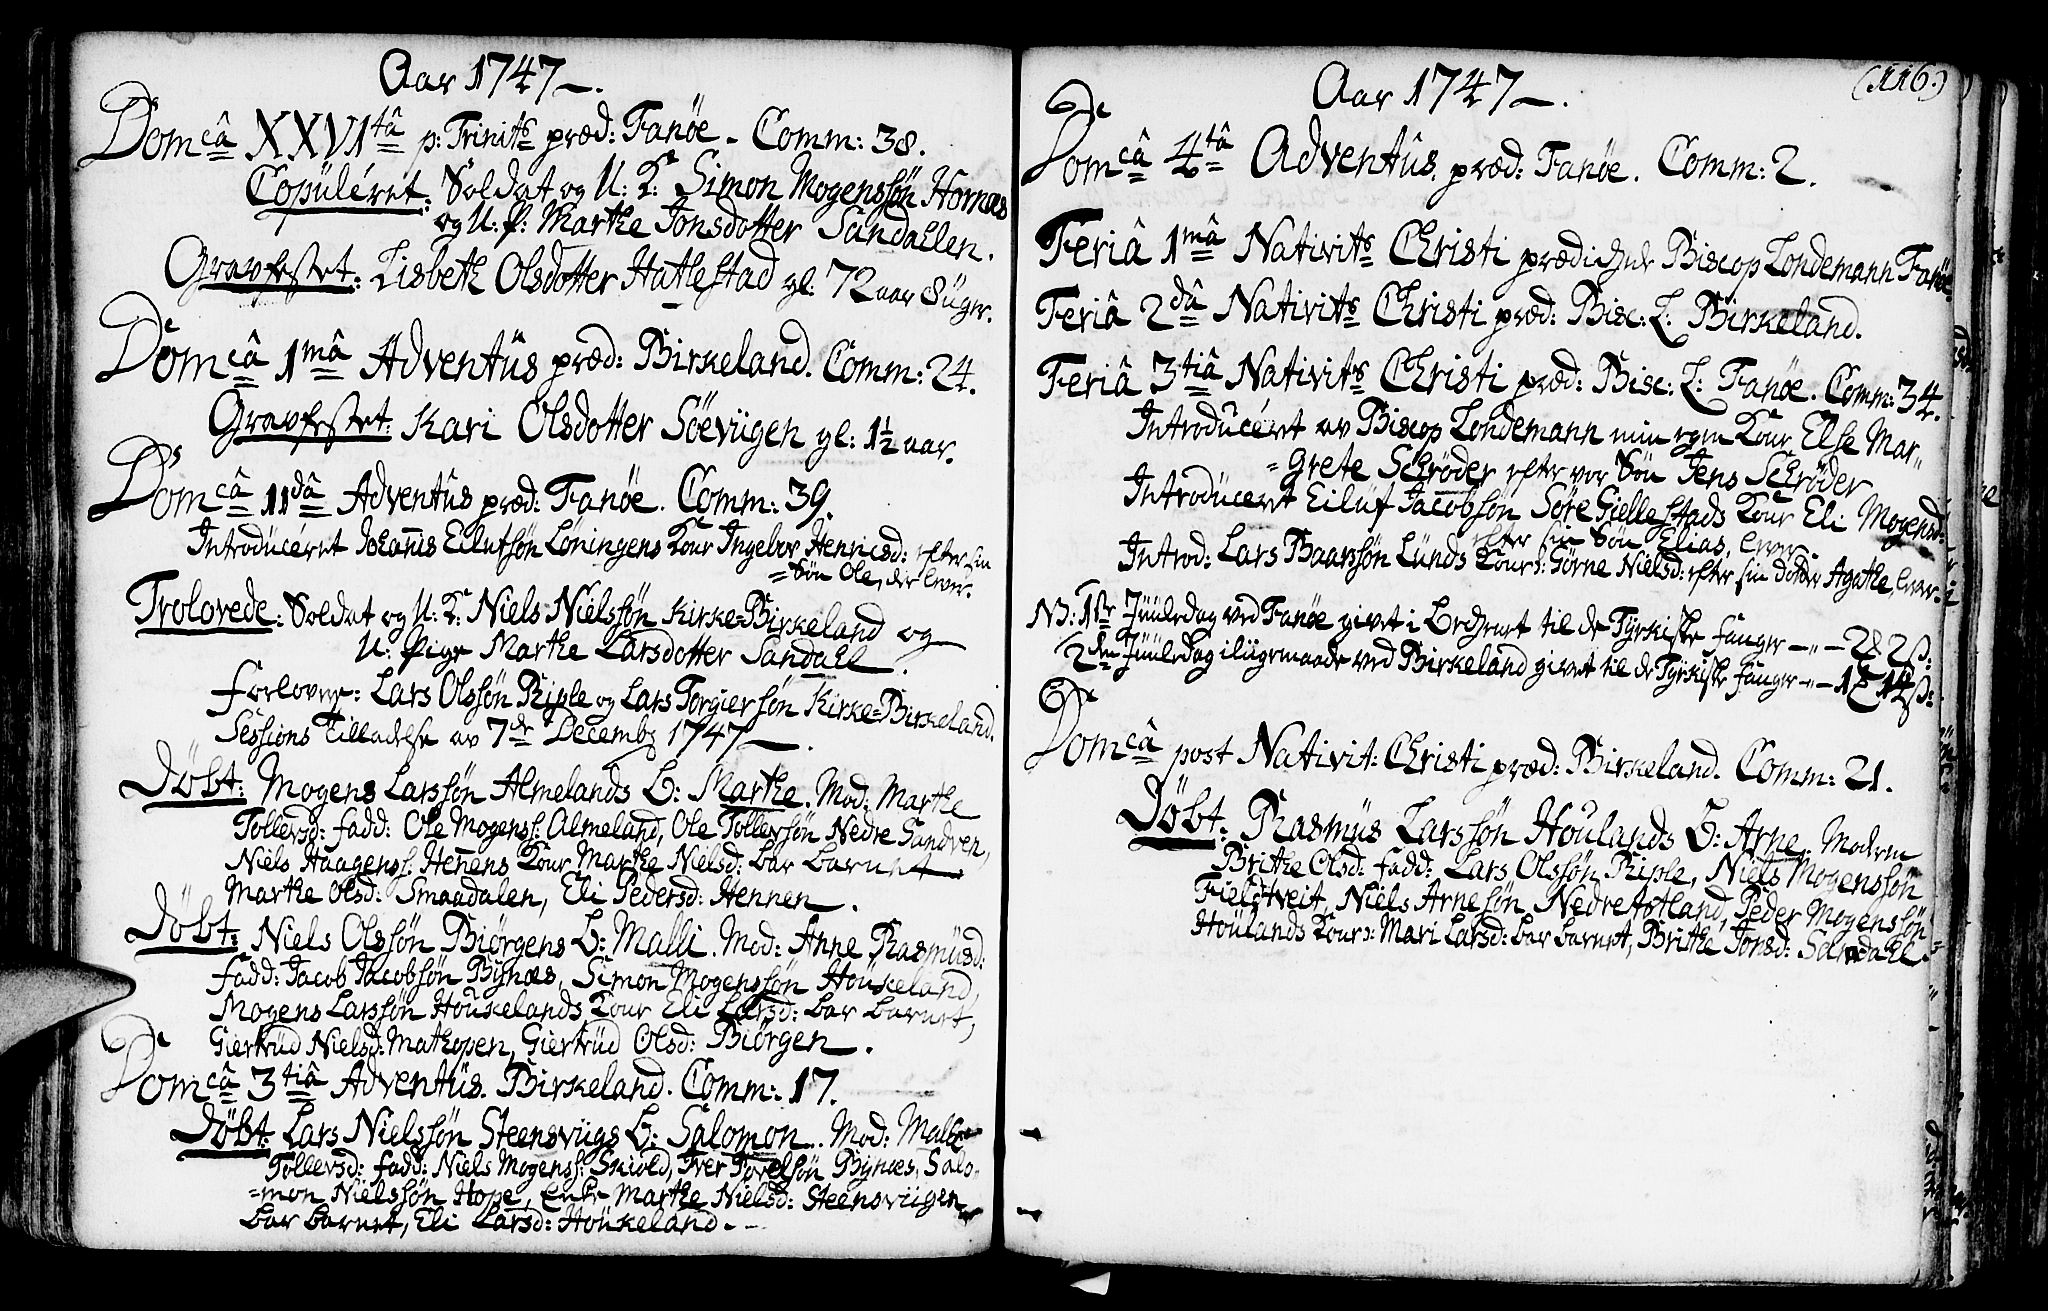 Aar 1747 –.
Domcâ XXVItâ p: Trinits præd: Fanöe – Comm: 38.
Copuléret: Soldat og U: K: Simon Mogenssön Hornæs
og U: P: Marthe Jonsdotter Sandahlen.
Gravfestet: Lisbeth Olsdotter Hathestad gl: 72 aar 8 uger.
Domcâ 1mâ Adventûs præd: Birkeland. Comm: 24.
Gravfestet: Kari Olsdotter Söeviigen gl: 1½ aar.
Domcâ 11dâ Adventûs præd: Fanöe. Comm: 39.
Introdúcéret Johanis Eilufsön Löningens Kone Ingebor Henricsd: efter sin
= Sön Ole, der lever.
Trolovede: Soldat og U: K: Niels Nielssön Kirke=Birkeland og
U: Pige Marthe Larsdotter Sandahl.
Forlovere: Lars Olssön Riple og Lars Torgiersön Kirke=Birkeland.
Sessions Tilladelse av 7de Decembr 1747 –.
Döbt: Mogens Larssön Almelands B: Marthe. Mod: Marthe
Tollevsd: fadd: Ole Mogenss: Almeland, Ole Tollevsön Nedre Sandven,
Niels Haagenss: Henens Kone Marthe Nielsd: bar barnet
Marthe Olsd: Smaadalen, Eli Pedersd: Hennen.
Döbt: Niels Olssön Biörgens B: Malli. Mod: Anne Rasmusd:
fadd: Jacob Jacobsön Bynæs, Simon Mogenssön Houkeland,
Mogens Larssön Houkelands Kone Eli Larsd: bar barnet,
Giertrud Nielsd: Mathopen, Giertrud Olsd: Biörgen.
Domcâ 3tiâ Adventûs. Birkeland. Comm: 17.
Döbt: Lars Nielssön Steensviigs B: Salomon. Mod: Malle
Tollevsd: fadd: Niels Mogenss: Skiold, Iver Povelsön Bynæs, Salo=
=mon Nielssön Hope, Enke Marthe Nielsd: Steensviigen
bar barnet, Eli Larsd: Houkeland.
(116.)
Aar 1747 –.
Domcâ 4tâ Adventûs. præd: Fanöe. Comm: 2.
Feriâ 1mâ Nativits Christi prædichede Biscop Londemann Fanöe.
Feriâ 2dâ Nativits Christi præd: Bisc: L: Birkeland.
Feriâ 3tiâ Nativits Christi præd: Bisc: L: Fanöe. Comm: 34.
Introdúcéret av Biscop Londemann min egen Kone Else Mar=
=grete Schröder efter vor Sön Jens Schröder
Introdúceret Eiluf Jacobsön Söre Giellestads Kone Eli Mogensd:
efter sin Sön Elias, lever.
Introd: Lars Baarssön Lunds Kone: Görne Nielsd: efter sin dotter Agathe, lever.
NB: 1ste Juuledag ved Fanöe givet i Bechenet til de Tyrkiske fanger – " – 2 2 ß:
2den Juuledag iliigemaade ved Birkeland givet til de Tyrkiske fanger – " – 1 14 ß:
Domcâ post Nativit: Christi præd: Birkeland. Comm: 21.
Döbt: Rasmus Larssön Houlands B: Arne. Moderen
Brithe Olsd: fadd: Lars Olssön Riple, Niels Mogenssön
Fieldtveit, Niels Arnesön Nedre Astland, Peder Mogenssön
Houlands Kone: Mari Larsd: bar barnet, Brithe Jonsd: Sandahl.